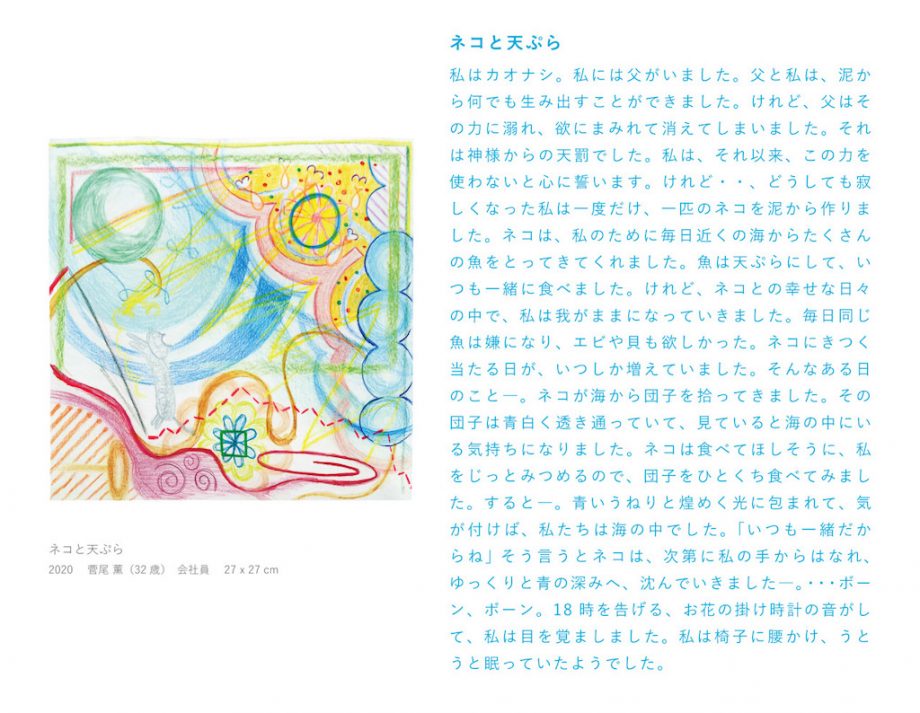 ネコと天ぷら
私はカオナシ。私には父がいました。父と私は、泥か
ら何でも生み出すことができました。けれど、父はそ
の力に溺れ、欲にまみれて消えてしまいました。それ
は神様からの天罰でした。私は、それ以来、この力を
使わないと心に誓います。けれど・・、どうしても寂
しくなった私は一度だけ、一匹のネコを泥から作りま
した。ネコは、私のために毎日近くの海からたくさん
の魚をとってきてくれました。魚は天ぷらにして、い
つも一緒に食べました。けれど、ネコとの幸せな日々
の中で、私は我がままになっていきました。毎日同じ
魚は嫌になり、エビや貝も欲しかった。ネコにきつく
当たる日が、いつしか増えていました。そんなある日
のこと―。ネコが海から団子を拾ってきました。その
団子は青白く透き通っていて、見ていると海の中にい
る気持ちになりました。ネコは食べてほしそうに、私
をじっとみつめるので、団子をひとくち食べてみまし
た。すると―。青いうねりと煌めく光に包まれて、気
が付けば、私たちは海の中でした。「いつも一緒だか
らね」そう言うとネコは、次第に私の手からはなれ、
ゆっくりと青の深みへ、沈んでいきました―。・・・ボー
ン、ボーン。18 時を告げる、お花の掛け時計の音がし
て、私は目を覚ましました。私は椅子に腰かけ、うと
うと眠っていたようでした。
ネコと天ぷら
2020 菅尾 薫（32 歳） 会社員 27 x 27 cm